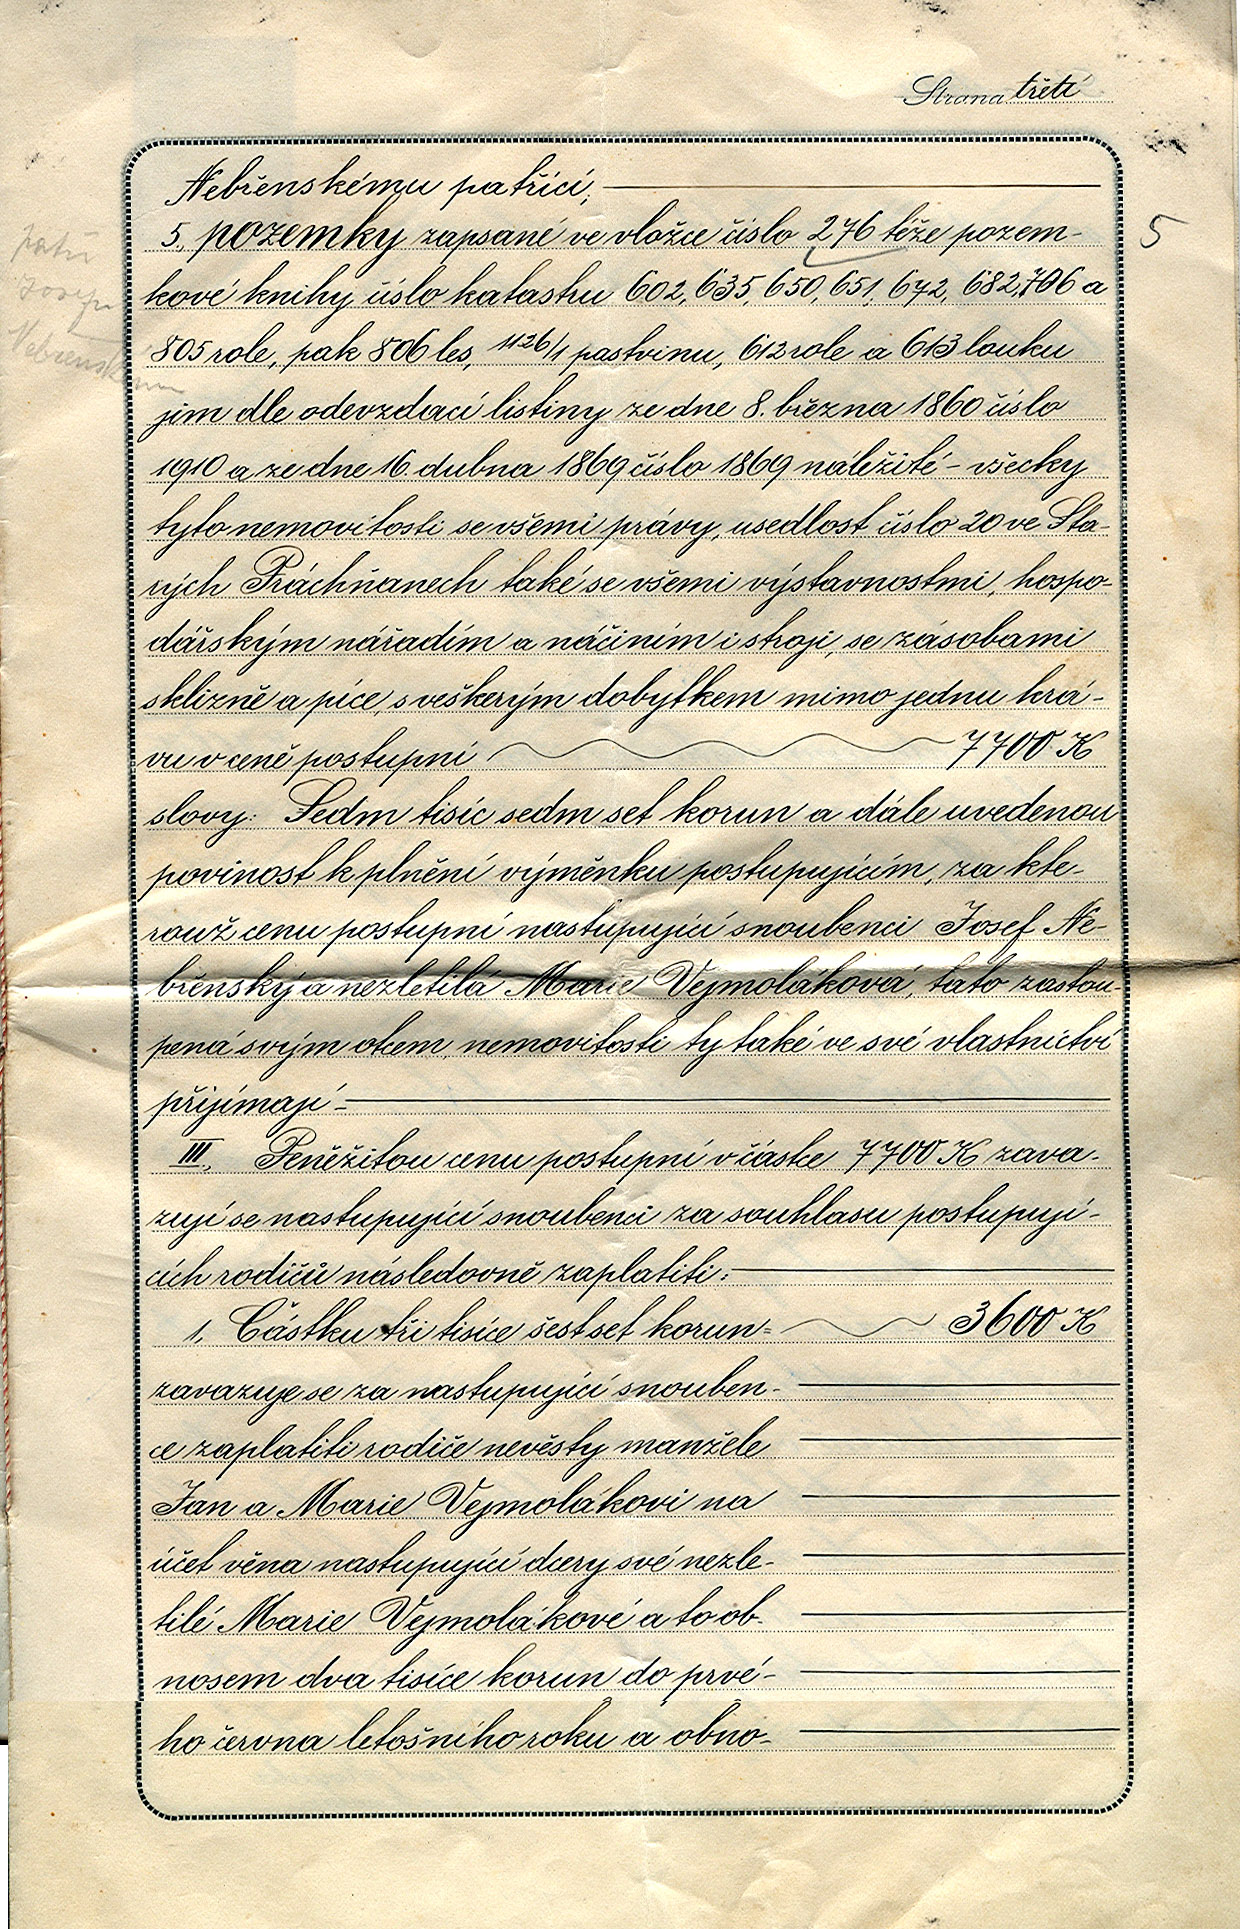 Strana třetí
Nebřenskému patřící,
5, pozemky zapsané ve vložce číslo 276 téže pozem-
5
patří
Josefu
Nebřenskému
kové knihy číslo katastru 602, 635, 650, 651, 672, 682, 706 a
805 role, pak 806 les, 1126/1 pastvinu, 612 role a 613 louku
jim dle odevzdací listiny ze dne 8. března 1860 číslo
1910 a ze dne 16. dubna 1869 číslo 1869 náležité - všecky
tyto nemovitosti se všemi právy, usedlost číslo 20 ve Sta-
rých Práchňanech také se všemi výstavnostmi, hospo-
dářským nářadím a náčiním i stroji, se zásobami
sklizně a píce, s veškerým dobytkem mimo jednu krá-
vu v ceně postupní 7700 K
slovy: Sedm tisíc sedm set korun a dále uvedenou
povinost k plnění výměnku postupujícím, za kte-
rouž cenu postupní nastupující snoubenci Josef Ne-
břenský a nezletilá Marie Vejmoláková, tato zastou-
pená svým otcem, nemovitosti ty také ve své vlastnictví
přijímají -
III. Peněžitou cenu postupní v částce 7700 K zava-
zují se nastupující snoubenci za souhlasu postupují-
cích rodičů následovně zaplatiti:
1, Částku tři tisíce šest set korun = 3600 K
zavazuje se za nastupující snouben-
ce zaplatiti rodiče nevěsty manžele
Jan a Marie Vejmolákovi na
účet věna nastupující dcery své nezle-
tilé Marie Vejmolákové a to ob-
nosem dva tisíce korun do prvé-
ho června letošního roku a obno-